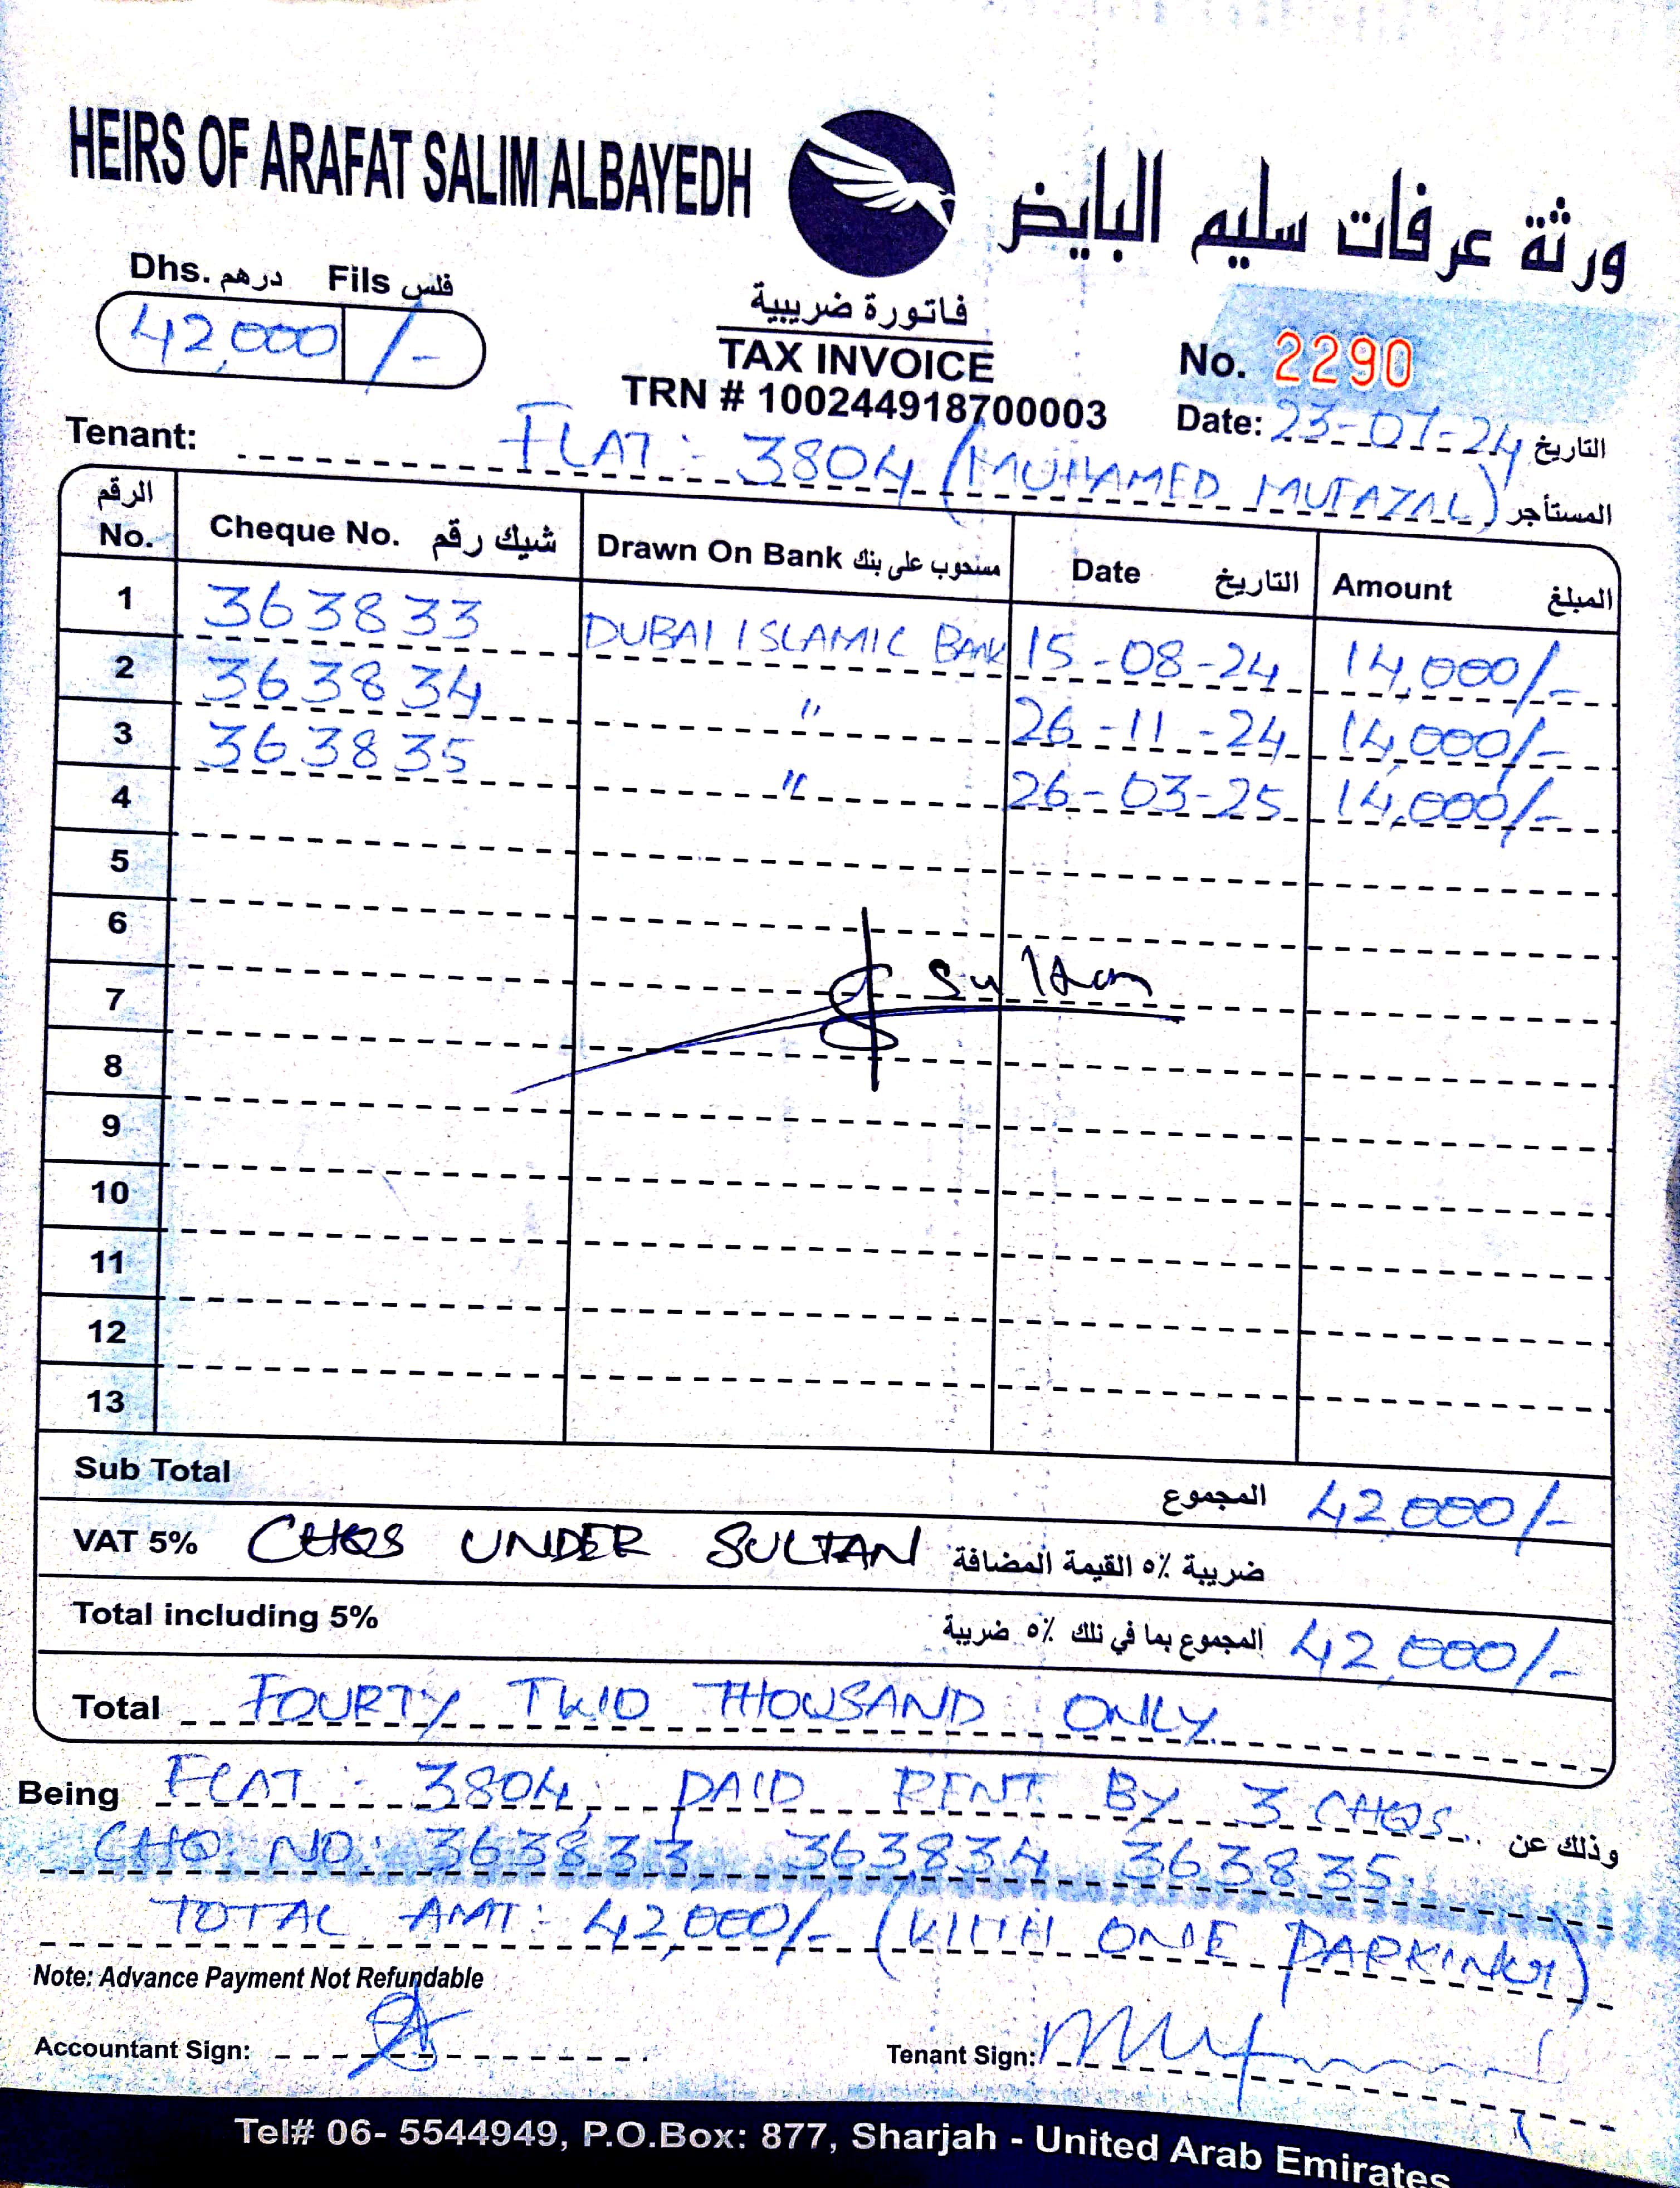 HEIRS OF ARAFAT SALIM ALBAYEDH
ورثة عرفات سليم البايض
Dhs. درهم Fils فلس
42,000 /-
فاتورة ضريبية
TAX INVOICE
TRN # 100244918700003
No. 2290
Date: 23-07-24 التاريخ
Tenant: FLAT: 3804 (MUHAMED MUFAZAL) المستأجر
الرقم No. Cheque No. شيك رقم Drawn On Bank مسحوب على بنك Date التاريخ Amount المبلغ
1 363833 DUBAI ISLAMIC BANK 15-08-24 14,000/-
2 363834 " 26-11-24 14,000/-
3 363835 " 26-03-25 14,000/-
4
5
6
Sultan
7
8
9
10
11
12
13
Sub Total المجموع 42,000/-
VAT 5% CHQS UNDER SULTAN ضريبة ٪٥ القيمة المضافة
Total including 5% المجموع بما في نلك ٪٥ ضريبة 42,000/-
Total FOURTY TWO THOUSAND ONLY.
Being FLAT: 3804, PAID RENT BY 3 CHQS. وذلك عن
CHQ NO: 363833, 363834, 363835.
TOTAL AMT: 42,000/- (WITH ONE PARKING)
Note: Advance Payment Not Refundable
Accountant Sign: Tenant Sign:
Tel# 06- 5544949, P.O.Box: 877, Sharjah - United Arab Emirates